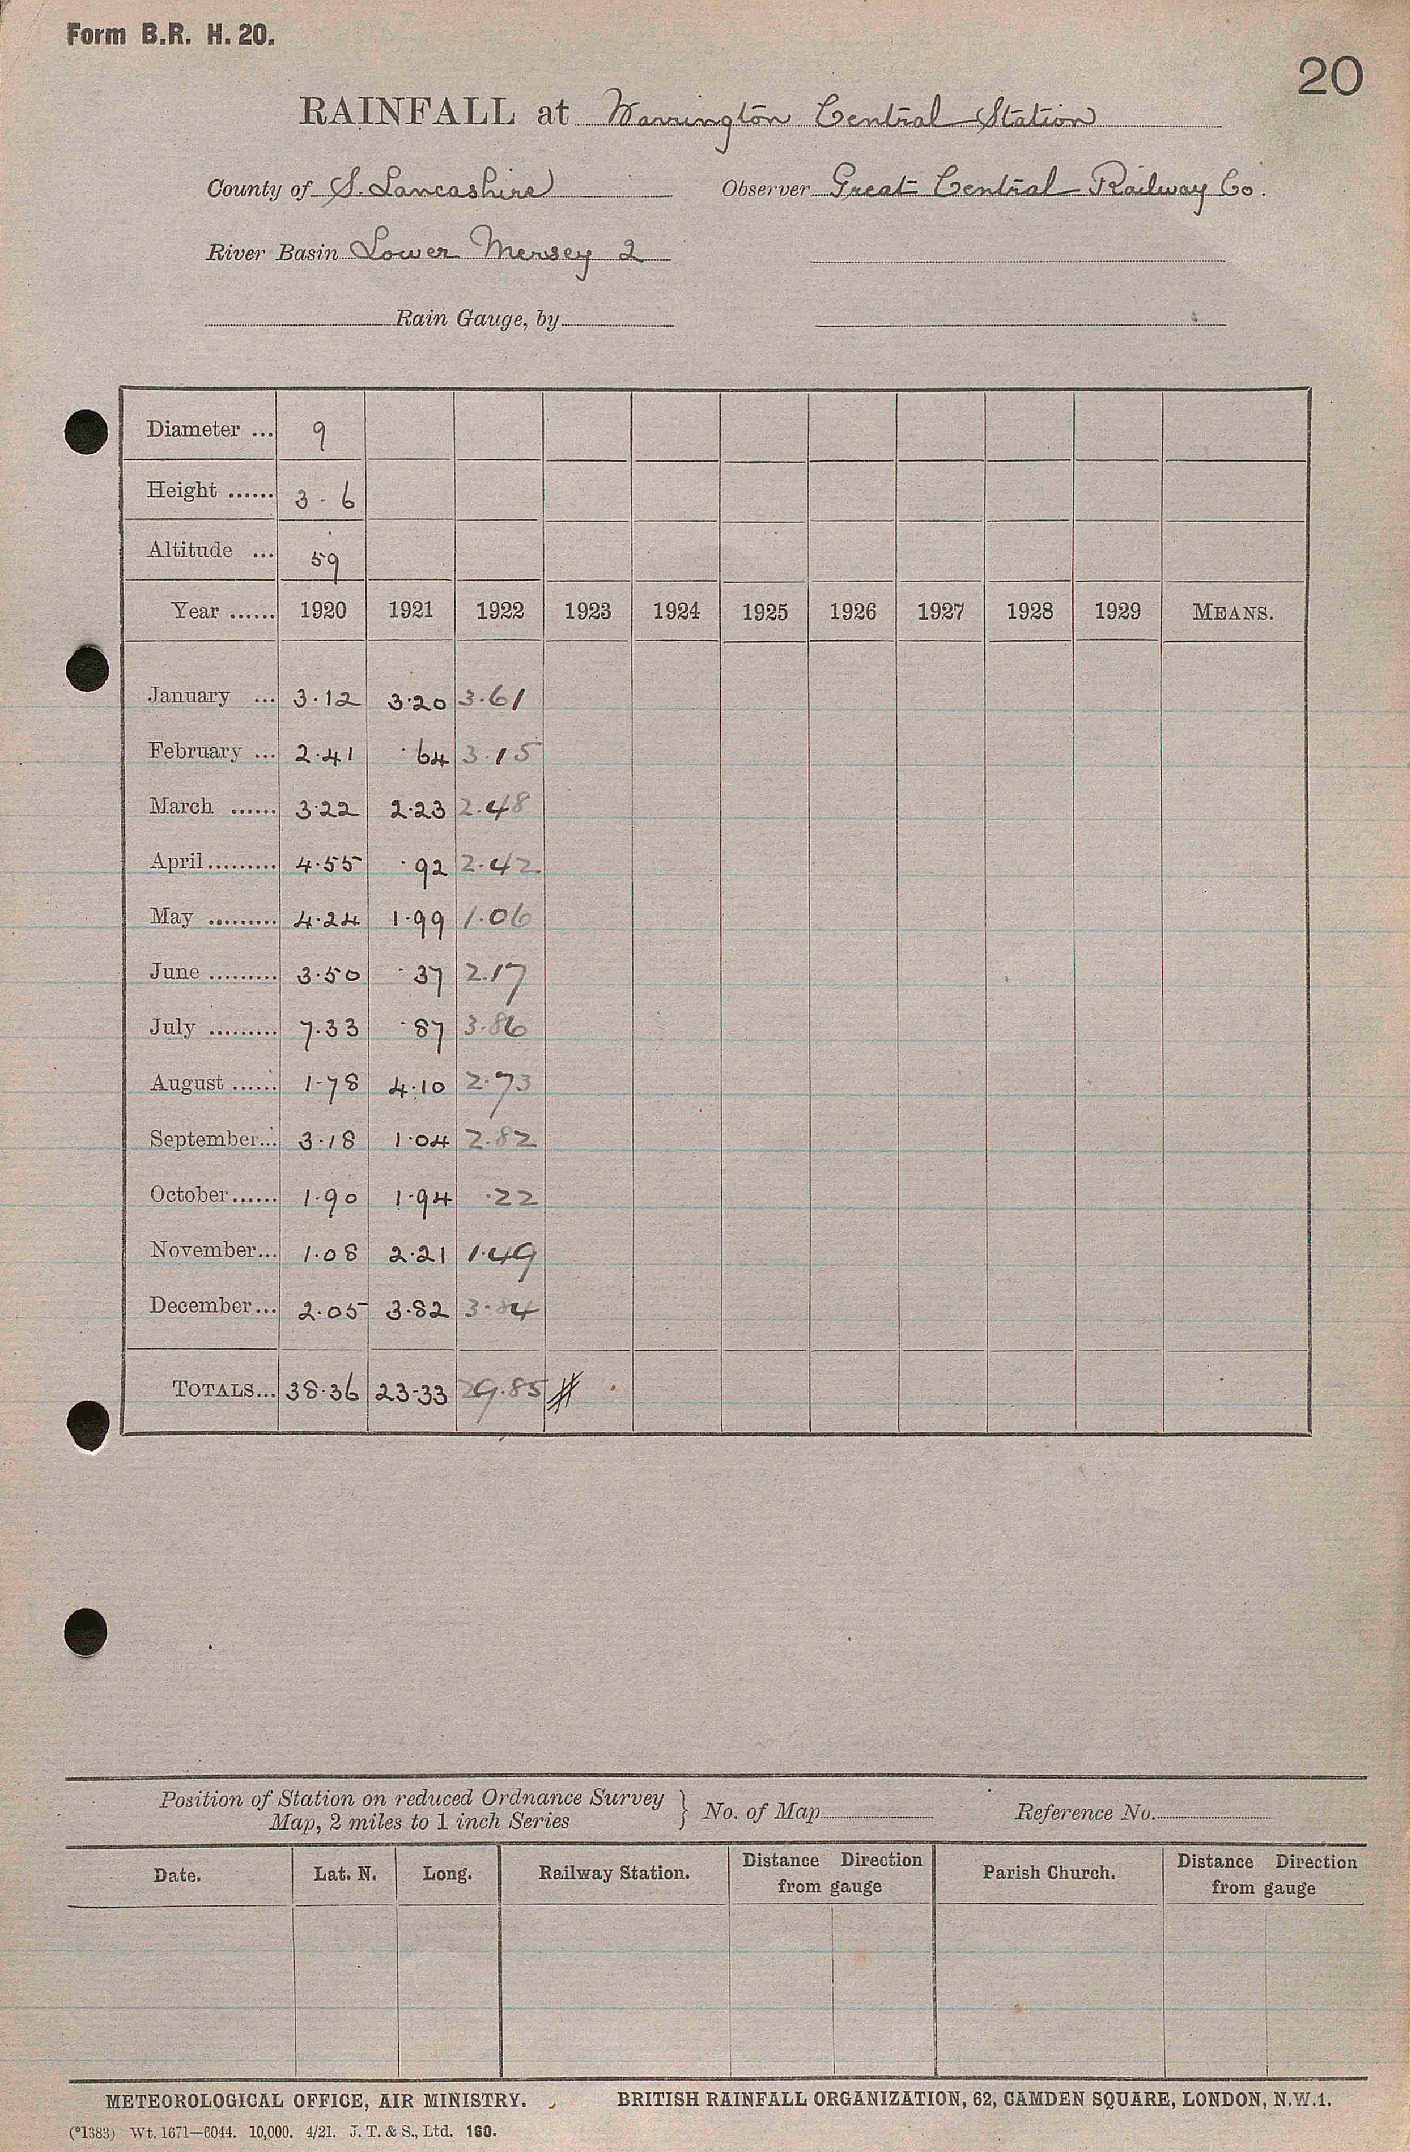 Form B.R. H. 20.
20
RAINFALL at Warrington Central Station
County of S. Lancashire Observer Great Central Railway Co.
River Basin Lower Mersey 2
Rain Gauge, by
Diameter ... 9
Height ...... 3 - 6
Altitude ... 59
Year ...... 1920 1921 1922 1923 1924 1925 1926 1927 1928 1929 MEANS.
January ... 3.12 3.20 3.61
February ... 2.41 .64 3.15
March ...... 3.22 2.23 2.48
April ......... 4.55 .92 2.42
May ......... 4.24 1.99 1.06
June ......... 3.50 .37 2.17
July ......... 7.33 .87 3.86
August ...... 1.78 4.10 2.73
September... 3.18 1.04 2.82
October...... 1.90 1.94 .22
November... 1.08 2.21 1.49
December... 2.05 3.82 3.84
TOTALS... 38.36 23.33 29.85 #
Position of Station on reduced Ordnance Survey
Map, 2 miles to 1 inch Series } No. of Map Reference No.
Date. Lat. N. Long. Railway Station. Distance Direction from gauge Parish Church. Distance Direction from gauge
METEOROLOGICAL OFFICE, AIR MINISTRY. BRITISH RAINFALL ORGANIZATION, 62, CAMDEN SQUARE, LONDON, N.W.1.
(*1383) Wt. 1671—6044. 10,000. 4/21. J. T. & S., Ltd. 160.